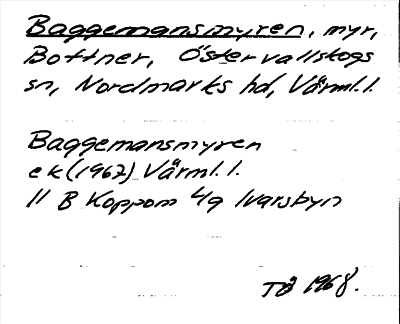 Baggemansmyren, myr,
Bottner, Östervallskogs
sn, Nordmarks hd, Värml.l.
Baggemansmyren
ek (1962) Värml.l.
11 B Koppom 4g Ivarsbyn
TÅ 1968.